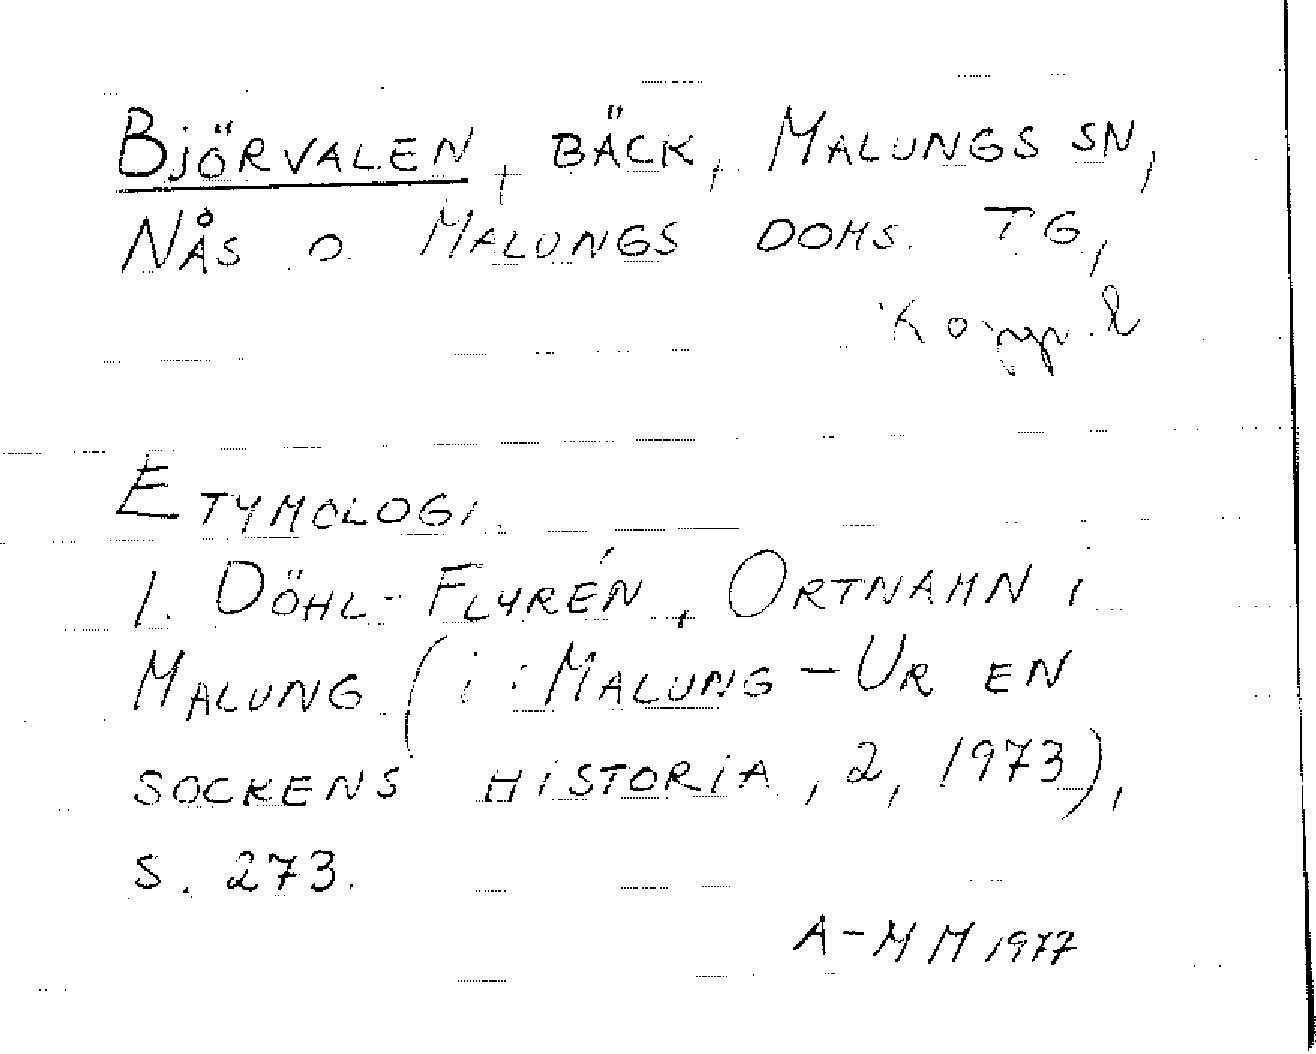 BJÖRVALEN, BÄCK, MALUNGS SN,
NÅS O. MALUNGS DOMS. TG,
Kopp. l
ETYMOLOGI.
1. DÖHL-FLYRÉN, ORTNAMN i
MALUNG (i: MALUNG – UR EN
SOCKENS HISTORIA, 2, 1973),
S. 273.
A-MM 1977